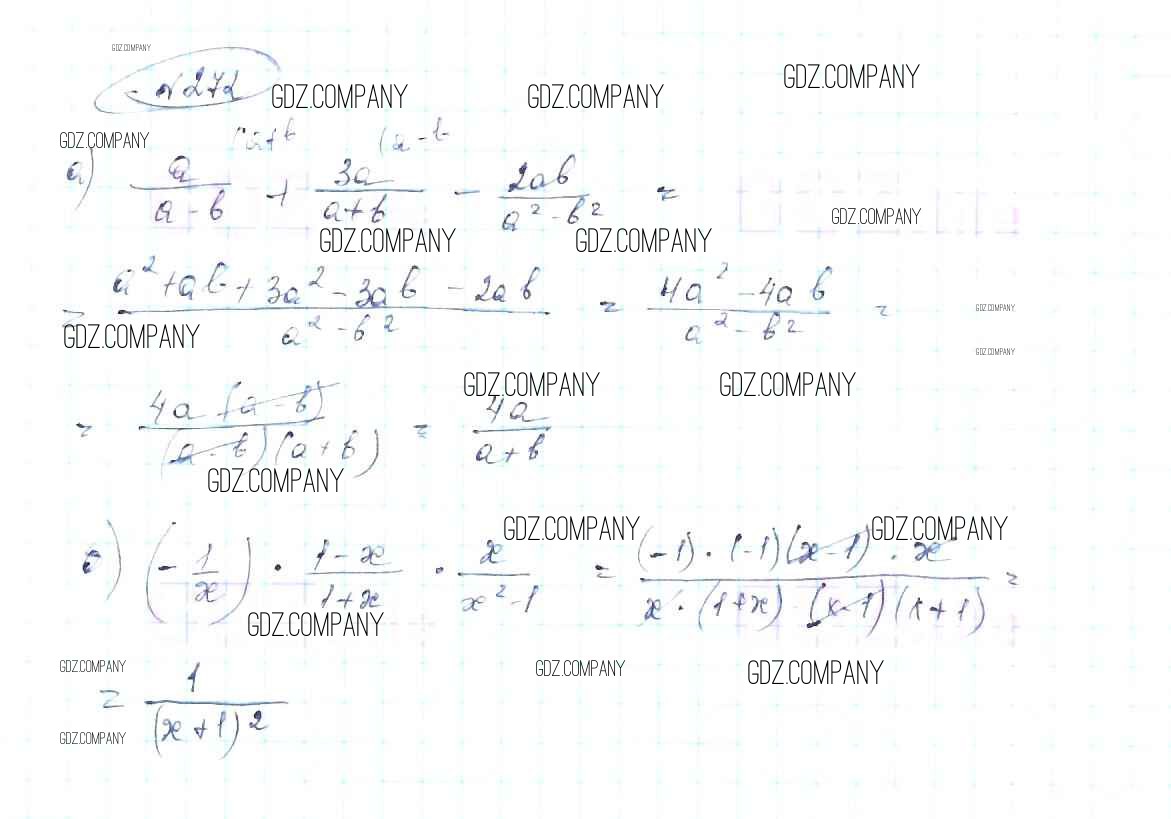 GDZ.COMPANY
№272
GDZ.COMPANY GDZ.COMPANY GDZ.COMPANY
GDZ.COMPANY (a+b (a-b
а) a/(a-b) + 3a/(a+b) - 2ab/(a²-b²) =
GDZ.COMPANY
GDZ.COMPANY GDZ.COMPANY
= (a²+ab+3a²-3ab-2ab)/(a²-b²) = (4a²-4ab)/(a²-b²) =
GDZ.COMPANY
GDZ.COMPANY
GDZ.COMPANY
GDZ.COMPANY GDZ.COMPANY
= 4a(a-b)/((a-b)(a+b)) = 4a/(a+b)
GDZ.COMPANY
GDZ.COMPANY GDZ.COMPANY
б) (-1/x) · (1-x)/(1+x) · x/(x²-1) = ((-1)·(-1)(x-1)·x)/(x·(1+x)(x-1)(x+1)) =
GDZ.COMPANY
GDZ.COMPANY GDZ.COMPANY GDZ.COMPANY
= 1/(x+1)²
GDZ.COMPANY